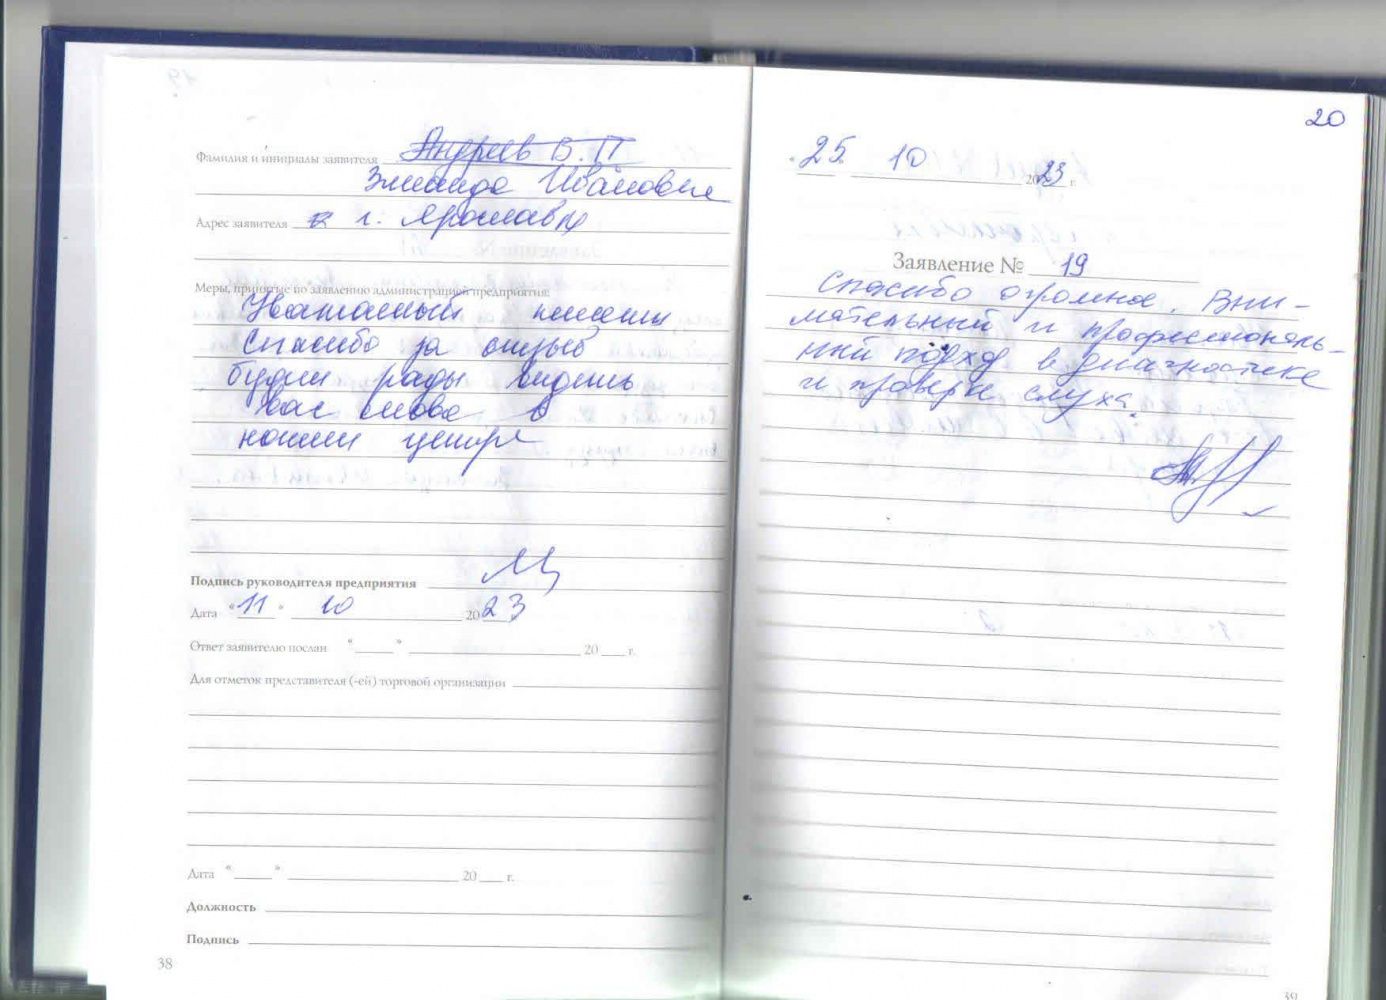 Фамилия и инициалы заявителя Андреев В. П
Зинаида Ивановна
Адрес заявителя г. Ярославль
Меры, принятые по заявлению администрацией предприятия:
Уважаемый
Спасибо за отзыв
будем рады видеть
вас снова в
нашем центре
Подпись руководителя предприятия
Дата "11" 10 2023
Ответ заявителю послан "____" ____ 20 __ г.
Для отметок представителя (-ей) торговой организации
Дата "____" ____ 20 __ г.
Должность
Подпись
38
20
25. 10 2023 г.
Заявление № 19
Спасибо огромное. Вни-
мательный и профессиональ-
ный подход в диагностике
и проверке слуха.
39